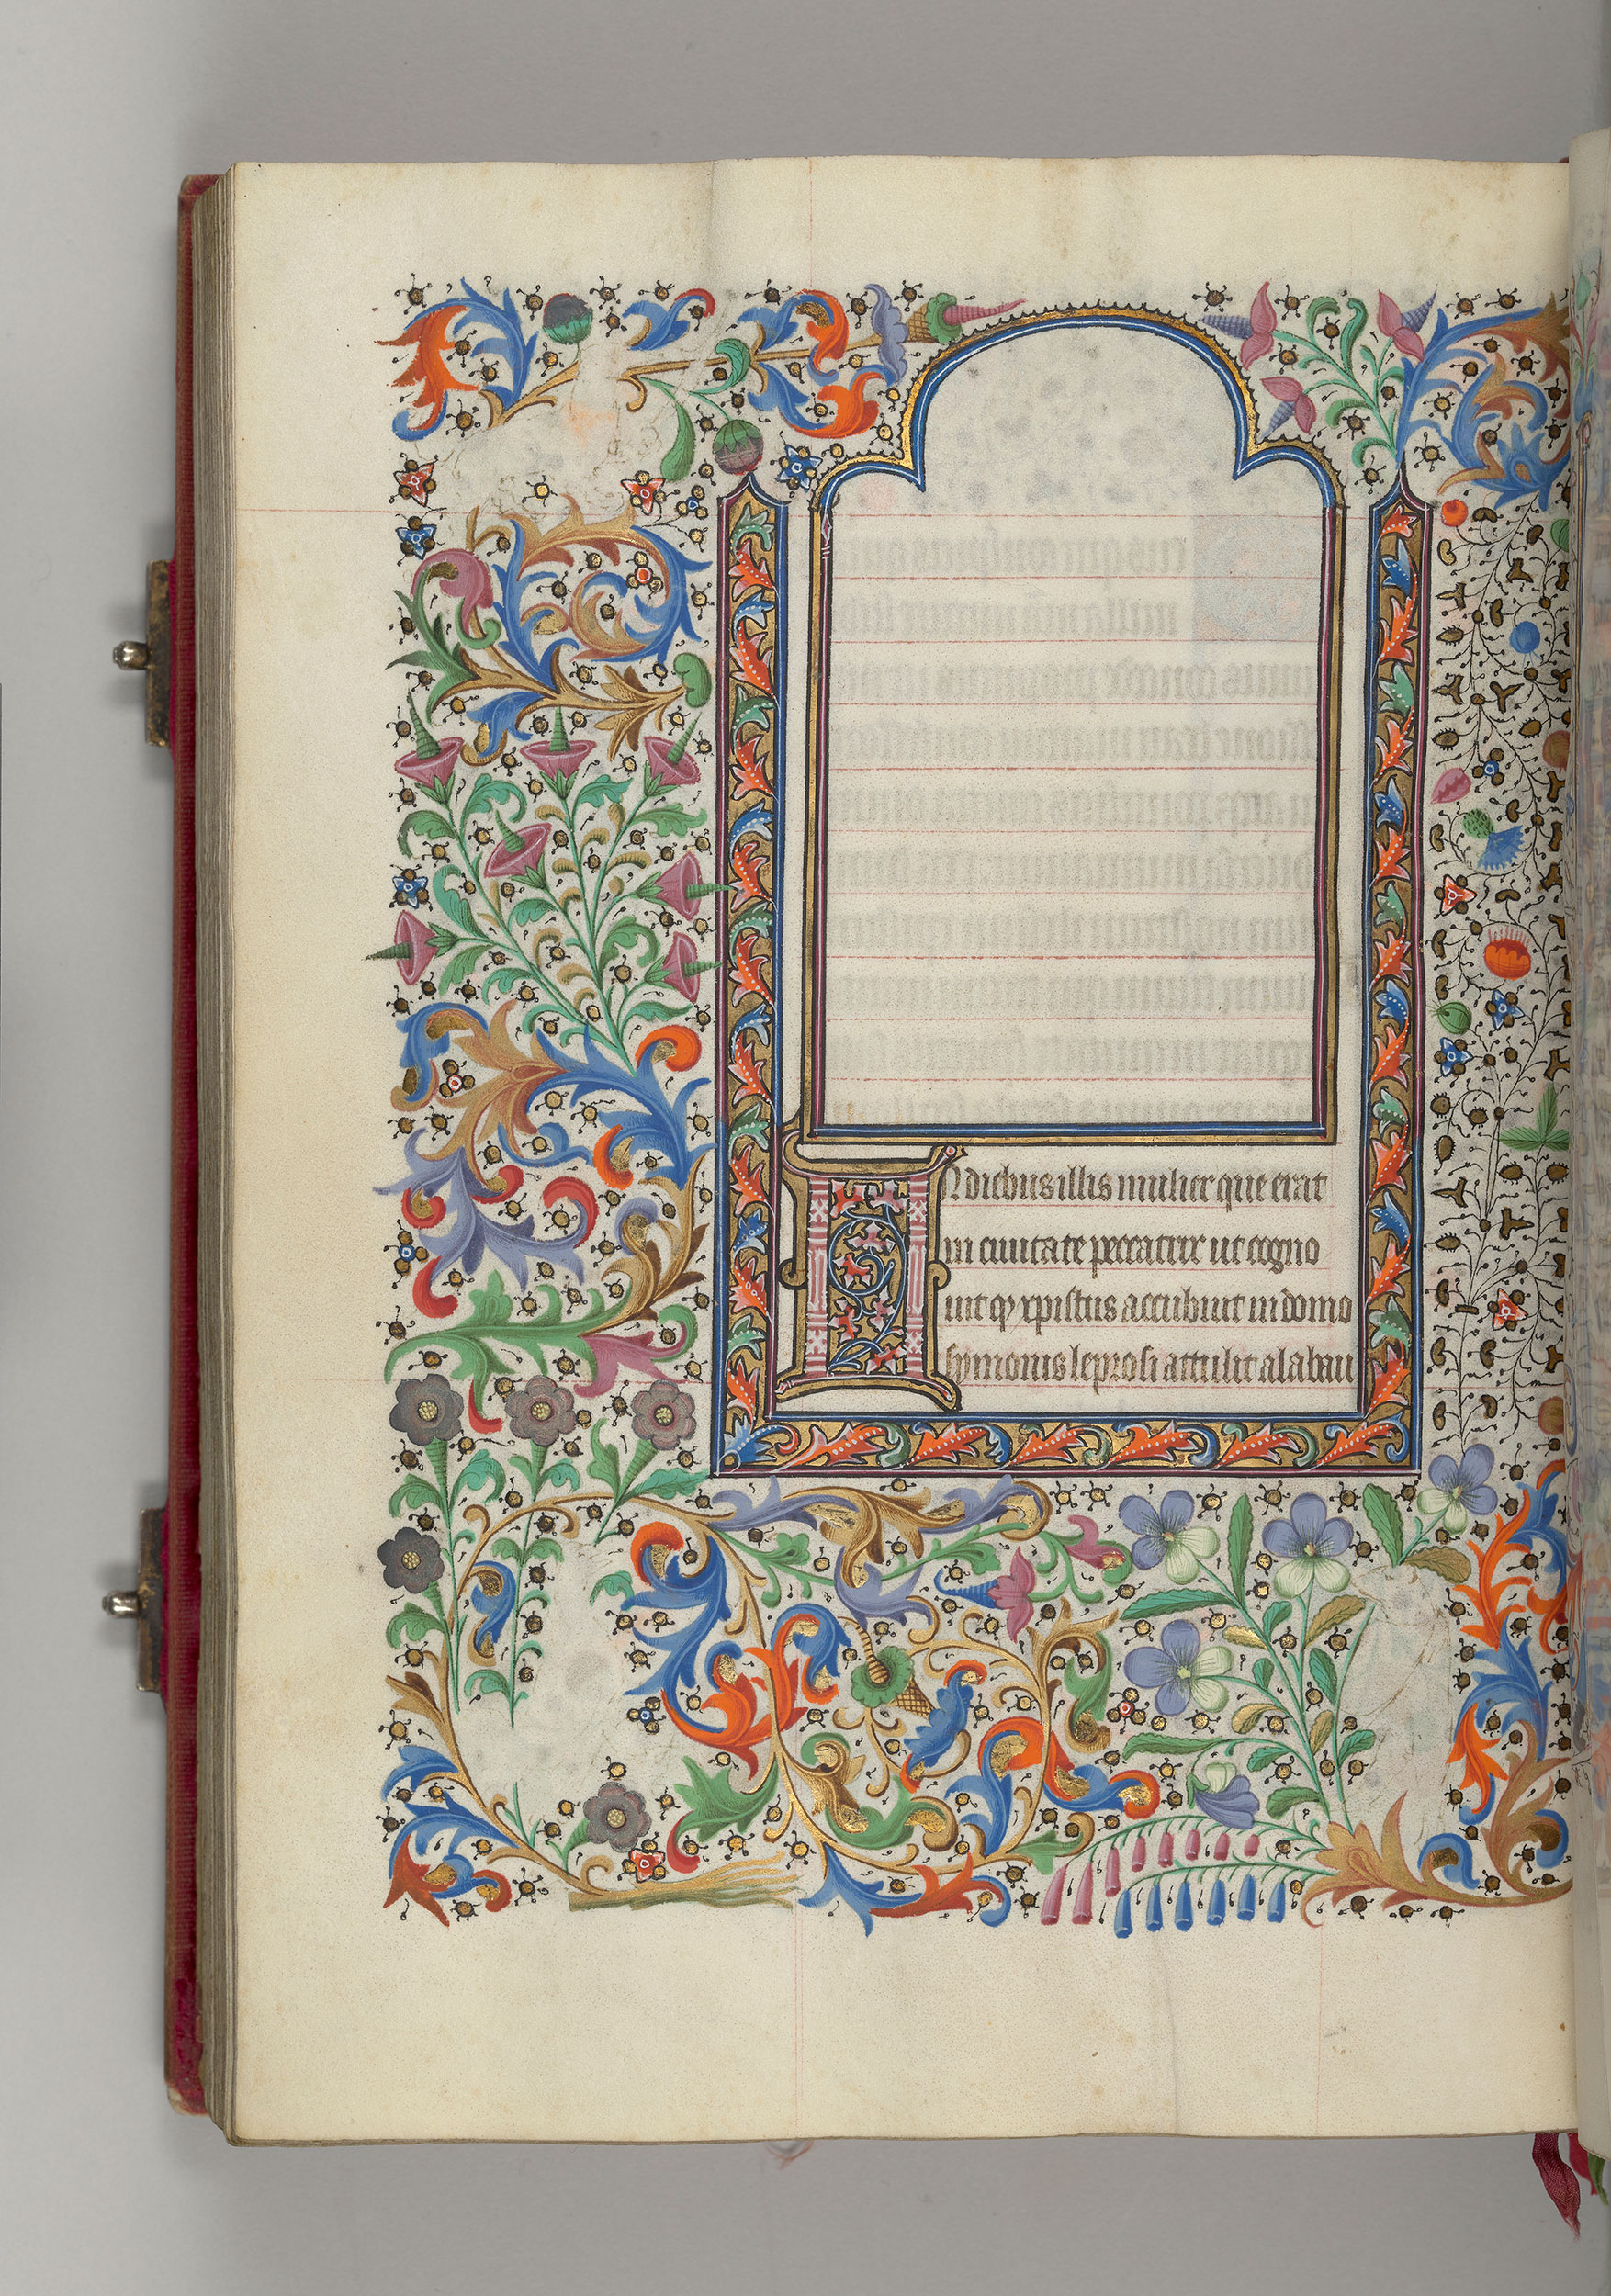 IN diebus illis mulier que erat
in ciuitate peccatrix ut cogno
uit qꝫ xpistus accubuit in domo
symonis leprosi attulit alabau